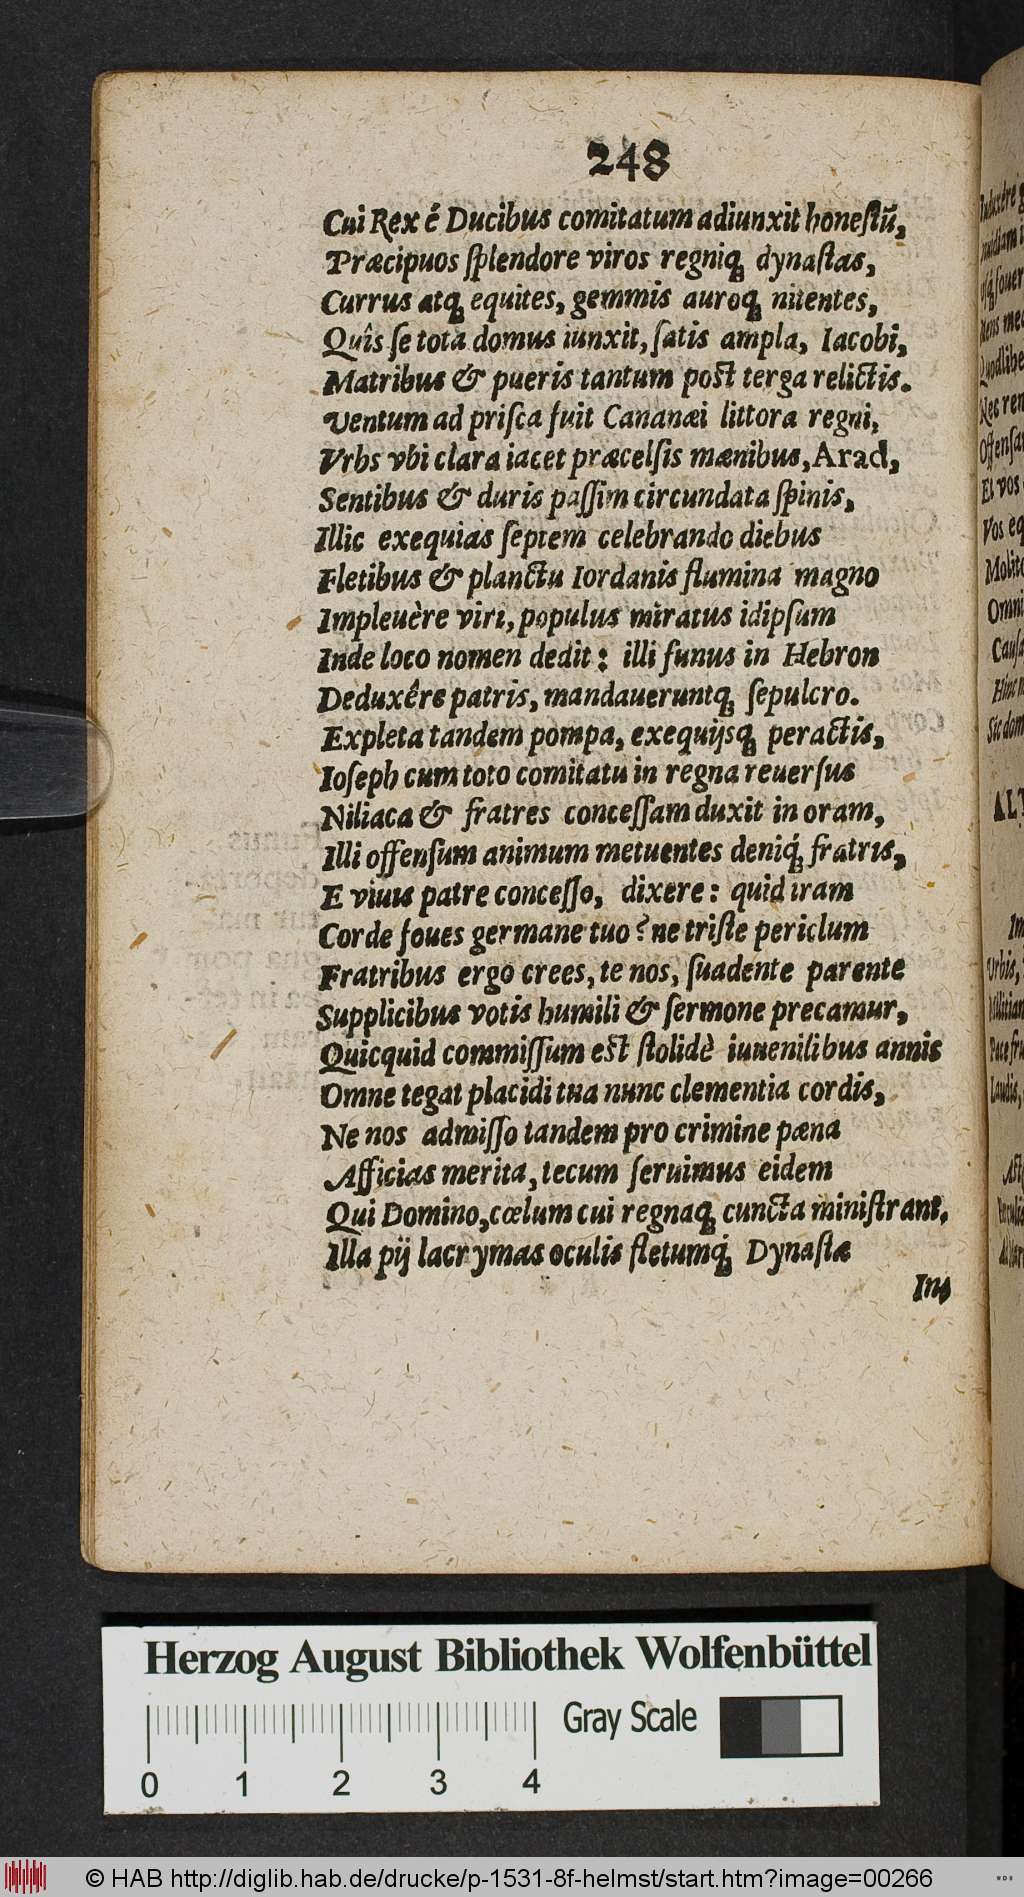 248
Cui Rex é Ducibus comitatum adiunxit honeſtū,
Præcipuos ſplendore viros regniq́ dynaſtas,
Currus atq́ equites, gemmis auroq́ nitentes,
Quîs ſe tota domus iunxit, ſatis ampla, Iacobi,
Matribus & pueris tantum poſt terga relictis.
Ventum ad priſca fuit Cananæi littora regni,
Vrbs vbi clara iacet præcelſis mænibus, Arad,
Sentibus & duris paſſim circundata ſpinis,
Illic exequias ſeptem celebrando diebus
Fletibus & planctu Iordanis flumina magno
Impleuère viri, populus miratus idipſum
Inde loco nomen dedit: illi funus in Hebron
Deduxêre patris, mandaueruntq́ ſepulcro.
Expleta tandem pompa, exequijsq́ peractis,
Ioſeph cum toto comitatu in regna reuerſus
Niliaca & fratres conceſſam duxit in oram,
Illi offenſum animum metuentes deniq́ fratris,
E viuis patre conceſſo, dixere: quid iram
Corde foues germane tuo? ne triſte periclum
Fratribus ergo crees, te nos, ſuadente parente
Supplicibus votis humili & ſermone precamur,
Quicquid commiſſum eſt ſtolidè iuuenilibus annis
Omne tegat placidi tua nunc clementia cordis,
Ne nos admiſſo tandem pro crimine pæna
Afficias merita, tecum ſeruimus eidem
Qui Domino, cœlum cui regnaq́ cuncta miniſtrant.
Illa pij lacrymas oculis fletumq́ Dynaſtæ
In-
ALT
Herzog August Bibliothek Wolfenbüttel
Gray Scale
0 1 2 3 4
© HAB http://diglib.hab.de/drucke/p-1531-8f-helmst/start.htm?image=00266